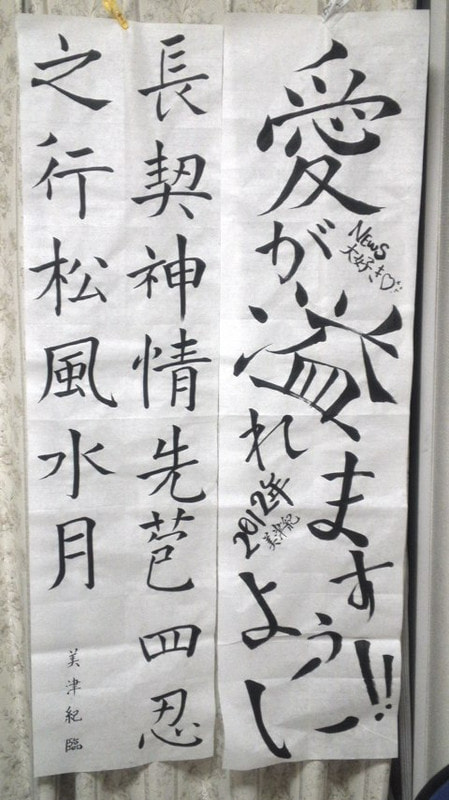 愛が溢れますように!!
NEWS
大好き♡
2012年
美津紀
長契神情先苞四忍
之行松風水月
美津紀臨